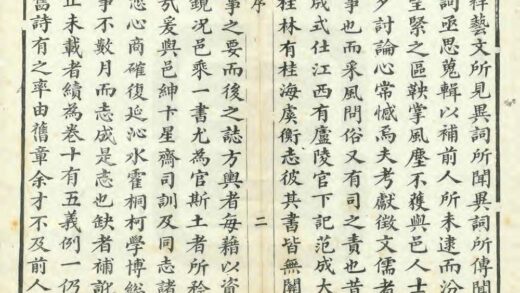 祥藝文所見異詞所聞異詞所傳聞
詞亟思蒐輯以補前人所未逮而汾
望緊之區鞅掌風塵不獲與邑人士
夕討論心常憾焉夫考獻徵文儒者
事也而采風問俗又有司之責也昔
成式仕江西有廬陵官下記范成大
桂林有桂海虞衡志彼其書皆無關
序 二
事之要而後之誌方輿者每藉以資
鏡況邑乘一書尤為官斯土者所矜
式爰與邑紳卞星齋司訓及同志諸
悉心商確復延沁水霍桐柯學博總
事不數月而志成是志也缺者補訛
正未載者續為卷十有五義例一仍
當詩有之率由舊章余才不及前人